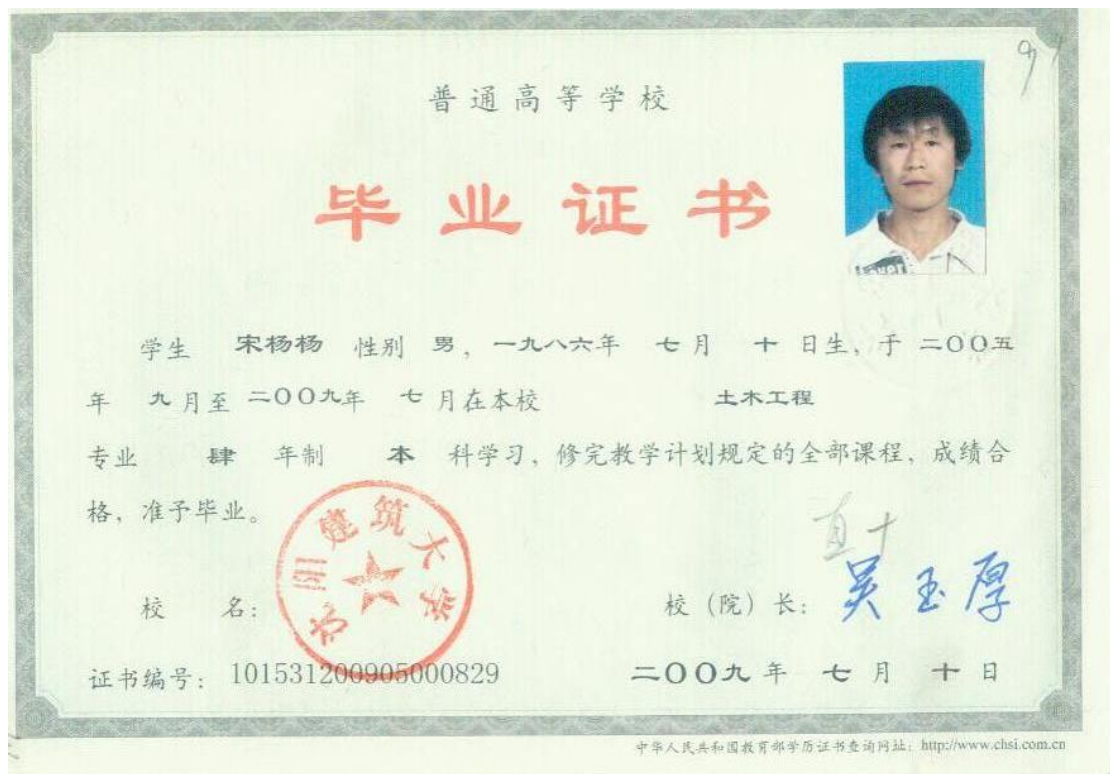 普通高等学校
毕业证书
学生 宋杨杨 性别 男，一九八六年 七月 十日生，于 二〇〇五
年 九月至 二〇〇九年 七月在本校 土木工程
专业 肆 年制 本 科学习，修完教学计划规定的全部课程，成绩合
格，准予毕业。
沈阳建筑大学
校 名：
校（院）长：吴玉厚
证书编号：101531200905000829
二〇〇九年 七月 十日
中华人民共和国教育部学历证书查询网址：http://www.chsi.com.cn